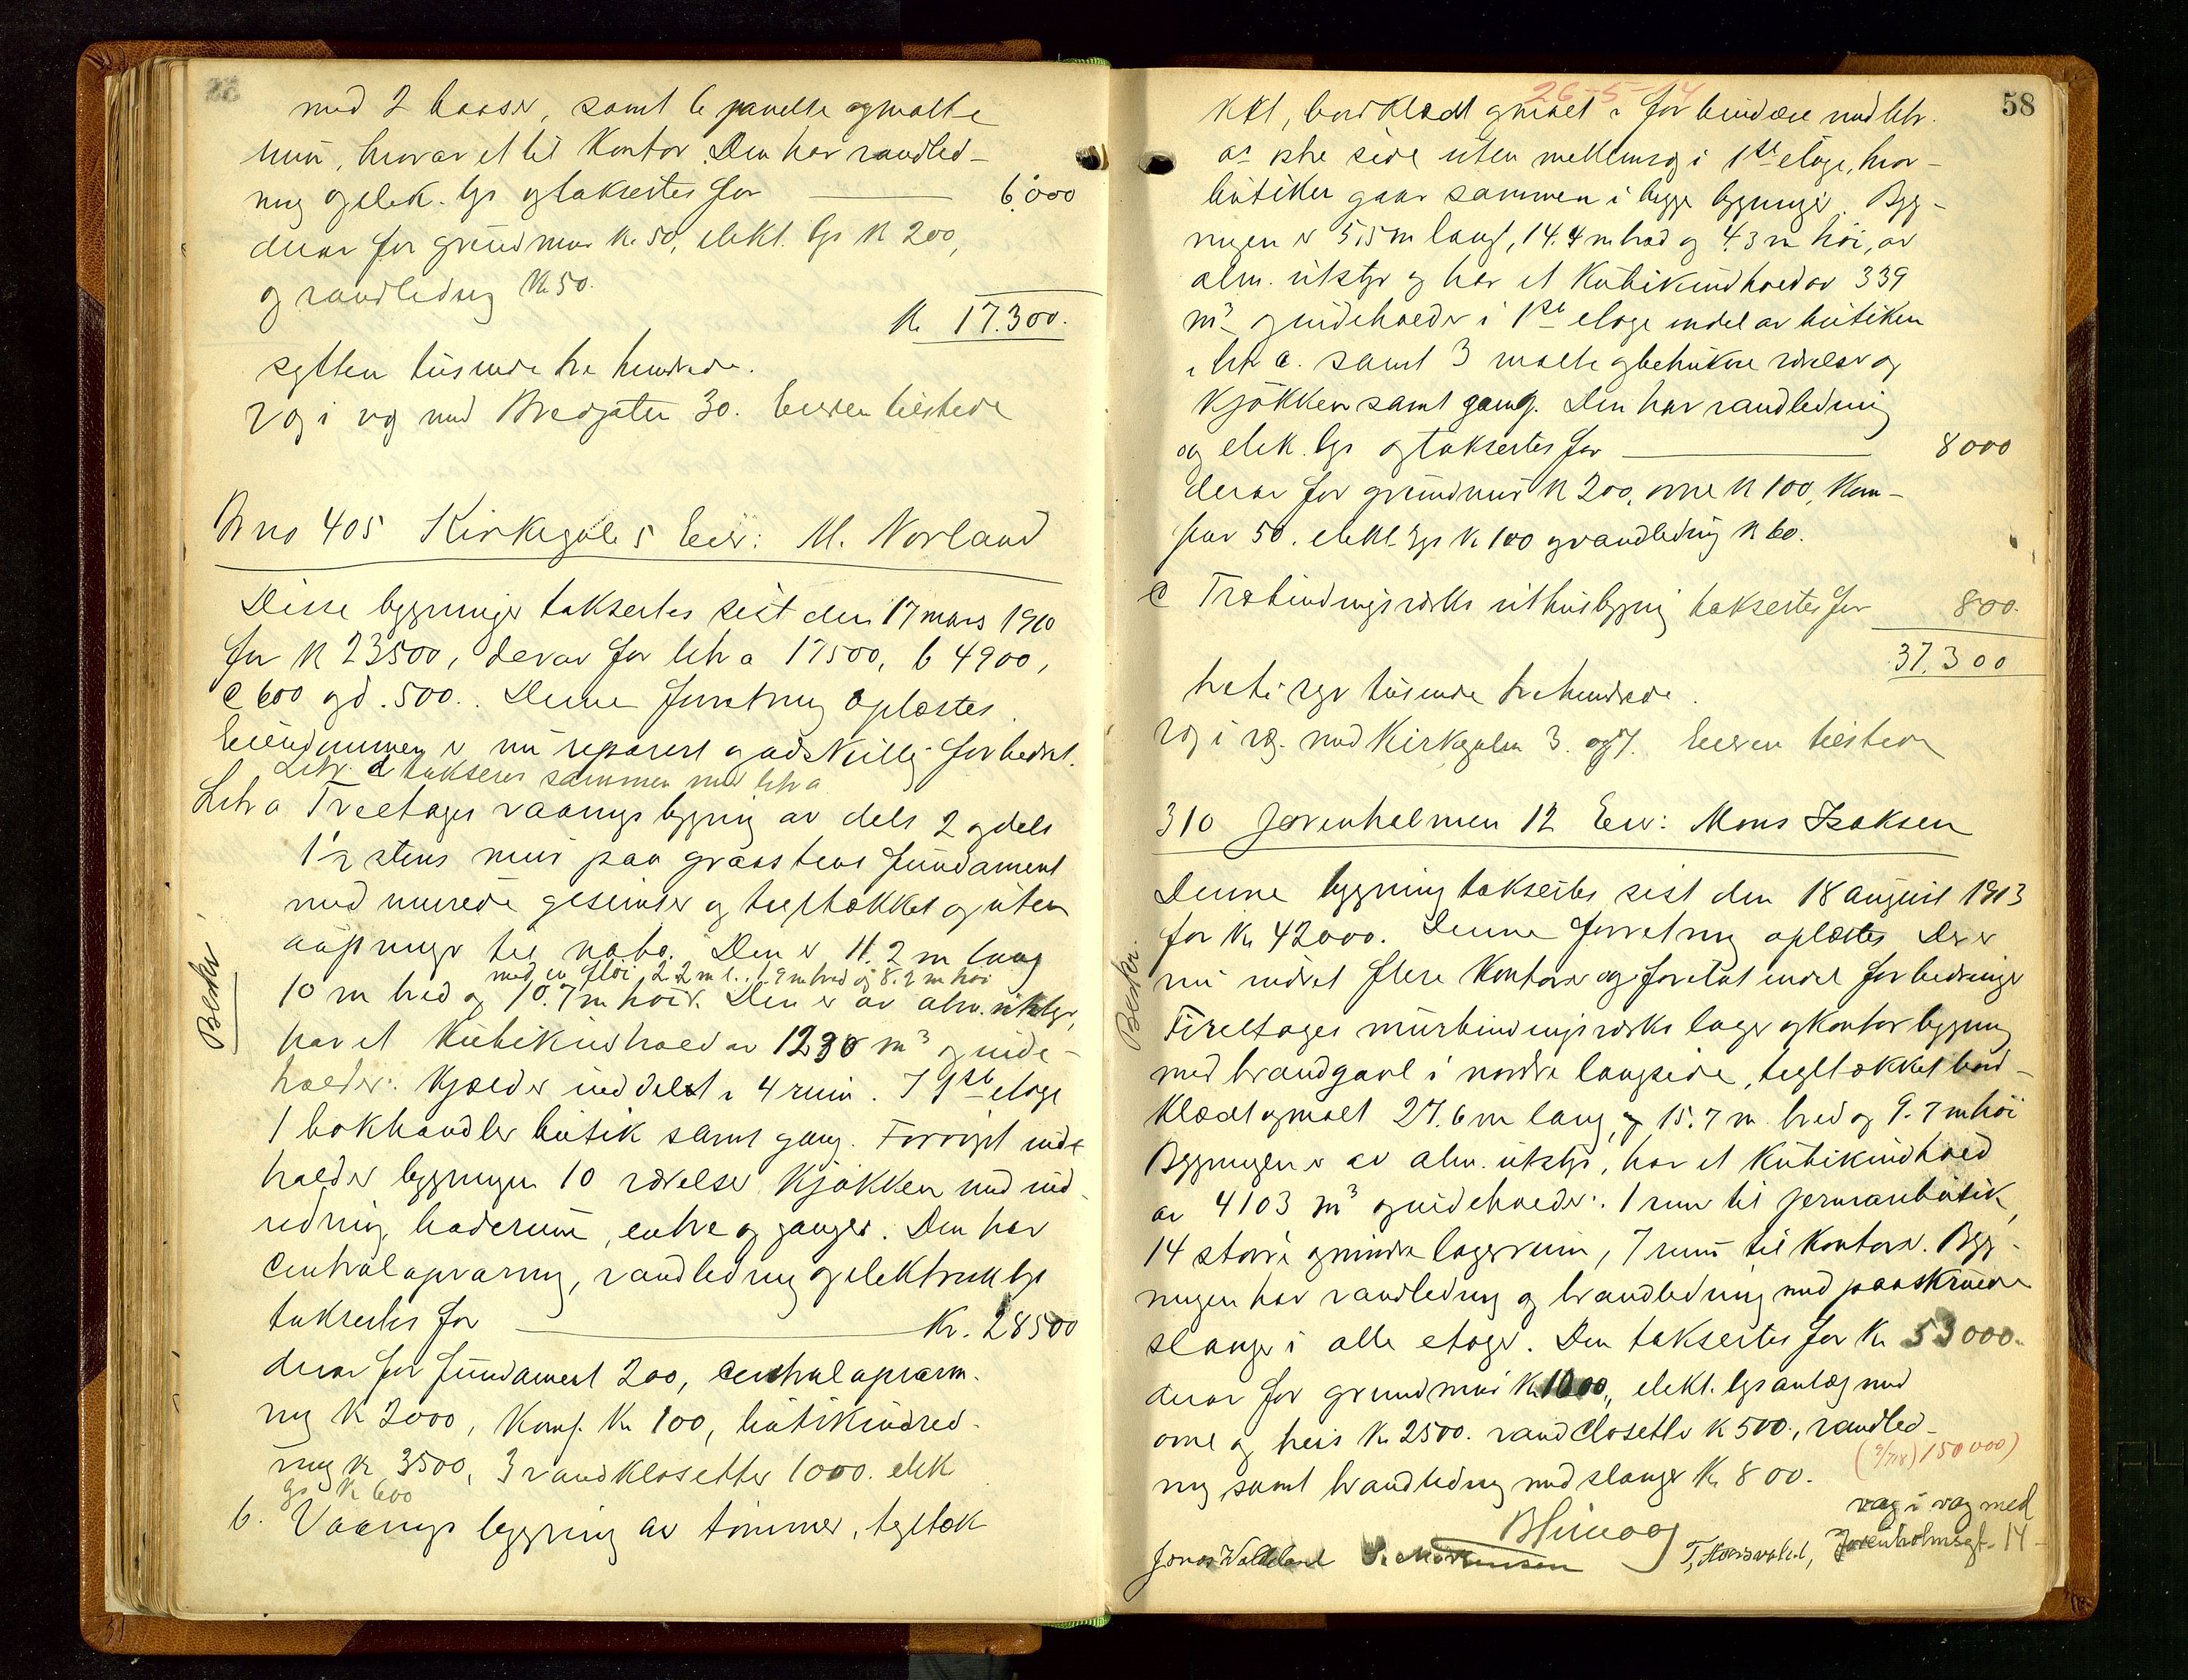 med 2 baaser, samt 6 panelte og malte
rum, hvorav et til Kontor. Den har vandled-
ning og elek. lys og taksertes for 6.000
derav for grundmur Kr 50, elekt. lys Kr 200,
og vandledning Kr 50.
Kr 17.300.
sytten tusinde tre hundrede.
væg i væg med Bredgaten 30. Eieren tilstede
Br no 405 Kirkegate 5 Eier: M. Norland
Disse bygninger taksertes sist den 17 mars 1910
for Kr 23500, derav for litr a 17500, b 4900,
c 600 og d. 500. Denne forretning oplæstes.
Eiendommen er nu reparert og adskillig forbedret.
Litr. d takseres sammen med litr a
Litr a Treetages vaaningsbygning av dels 2 og dels
1½ stens mur paa graastens fundament
med murede gesimser og tegltækket og uten
aapninger til nabo. Den er 11.2 m lang
med en fløi 2.2 m l. 1.9 m bred og 8.2 m høi
10 m bred og 10.7 m høi. Den er av alm. utstyr,
har et Kubikindhold av 1230 m³ og inde-
holder: Kjælder inddelt i 4 rum. I 1ste etage
1 bokhandler butik samt gang. Forøvrigt inde
holder bygningen 10 værelser Kjøkken med ind-
redning, baderum, entre og ganger. Den har
Centralopvarmg, vandledning og elektrisk lys
taksertes for Kr. 28500
derav for fundament 200, centralopvarm-
ing Kr 2000, Komf. Kr 100, butikindred-
ning Kr 3500, 3 vandklosetter 1000. elek
lys Kr 600
b. Vaanings bygning av tømmer, tegltæk
Beskr.
58
26-5-14
ket, bordklædt og malet i forbindelse med litr.
a's østre side uten mellemvæg i 1ste etage, hvor-
butiken gaar sammen i begge bygninger. Byg-
ningen er 5,5 m lang, 14.4 m bred og 4.3 m høi, av
alm. utstyr og har et Kubikindhold av 339
m³ og indeholder i 1ste etage endel av butiken
i litr a. samt 3 malte og betrukne værelser og
Kjøkken samt gang. Den har vandledning
og elek. lys og taksertes for 8000
derav for grundmur Kr 200, ovne Kr 100, Kom-
fur 50. elekt. lys Kr 100 og vandledning Kr 60.
c Træbindingsverks uthusbygning taksertes for 800.
37.300
tretti syv tusinde tre hundrede.
væg i væg. med Kirkegaten 3. og 7. Eieren tilstede
310 Jorenholmen 12 Eier: Mons Isaksen
Denne bygning taksertes sist den 18 august 1913
for Kr 42000. Denne forretning oplæstes. Der er
nu indredet flere Kontorer og foretat endel forbedringer
Fireetages murbindingsverks lager og kontorbygning
med brandgavl i nordre langside, tegltækket bord-
klædt og malt 27.6 m lang, og 15.7 m bred og 9.7 m høi
Bygningen er av alm. utstyr, har et Kubikindhold
av 4103 m³ og indeholder: 1 rum til permanbutik,
14 større og mindre lagerrum, 7 rum til Kontorer. Byg-
ningen har vandledning og brandledning med paaskruede
slanger i alle etager. Den taksertes for Kr 53000.
derav for grundmur Kr 1000, elekt. lysanlæg med
ovne og heis Kr 2500. vandclosetter Kr 500, vandled-
(9/7 18) 150000)
ning samt brandledning med slanger Kr 800.
væg i væg med
Jorenholmsgt. 14
Jonas Waldeland S. Mortensen
Beskr.